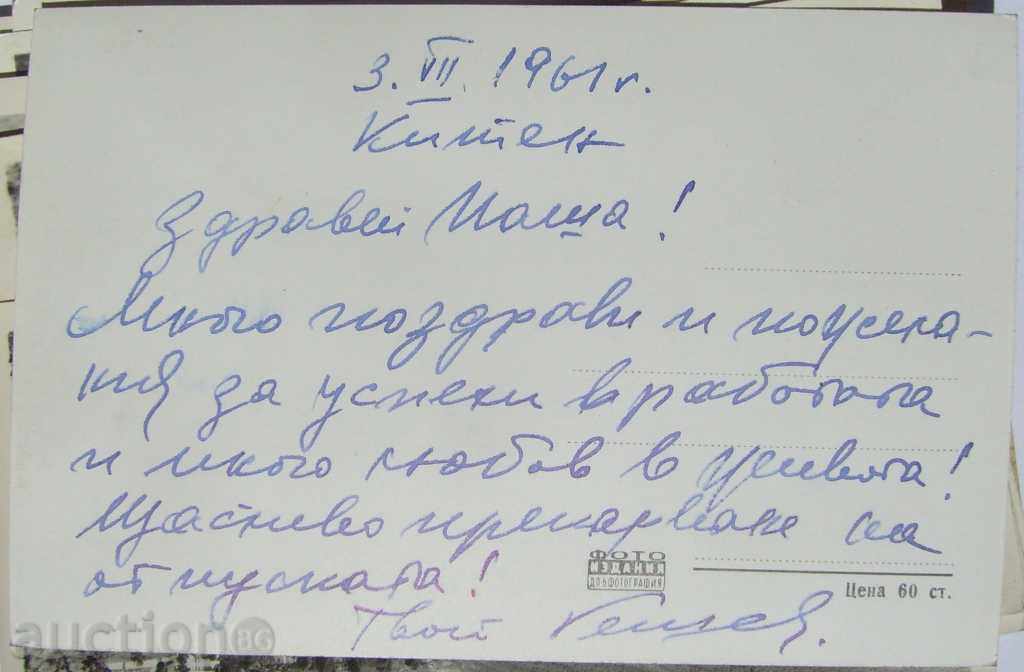 3. VII. 1961 г.
Китен
Здравей Маша!
Много поздрави и пожела-
ния за успехи в работата
и много любов в живота!
Щастливо прекарване на
отпуската!
Твой
ФОТО
ИЗДАНИЯ
ДП БФОТОГРАФИЯ
Цена 60 ст.
auction BG